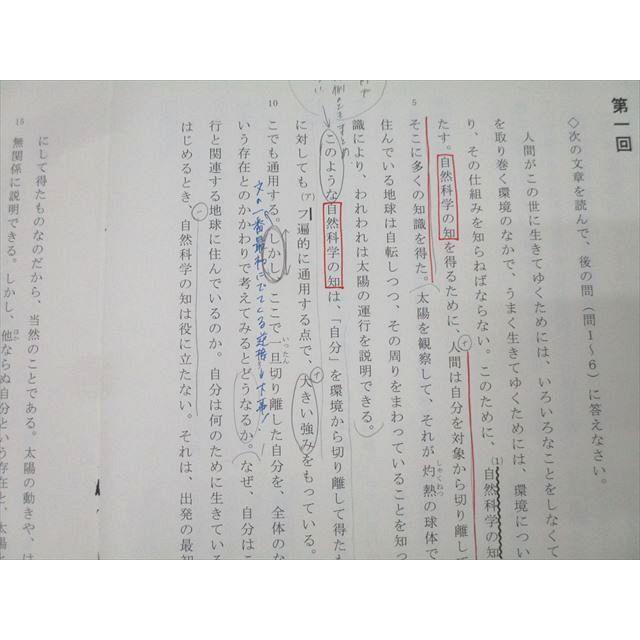 第一回
◇次の文章を読んで、後の問（問1～6）に答えなさい。
人間がこの世に生きてゆくためには、いろいろなことをしなくて
を取り巻く環境のなかで、うまく生きてゆくためには、環境につい
り、その仕組みを知らねばならない。このために、(1)自然科学の知
たす。自然科学の知を得るために、人間は自分を対象から切り離し
5
そこに多くの知識を得た。太陽を観察して、それが灼熱の球体で
しゃくねつ
住んでいる地球は自転しつつ、その周りをまわっていることを知っ
識により、われわれは太陽の運行を説明できる。
このような自然科学の知は、「自分」を環境から切り離して得た
に対しても(ア)フ遍的に通用する点で、大きい強みをもっている。
イ
イ
10
こでも通用する。しかし、ここで一旦切り離した自分を、全体のな
いったん
文の一番最初にでている逆接
いう存在とのかかわりで考えてみるとどうなるか。なぜ、自分はこ
行と関連する地球に住んでいるのか。自分は何のために生きている
はじめるとき、自然科学の知は役に立たない。それは、出発の最初
15
にして得たものなのだから、当然のことである。太陽の動きや、は
無関係に説明できる。しかし、他ならぬ自分という存在と、太陽と
ほか